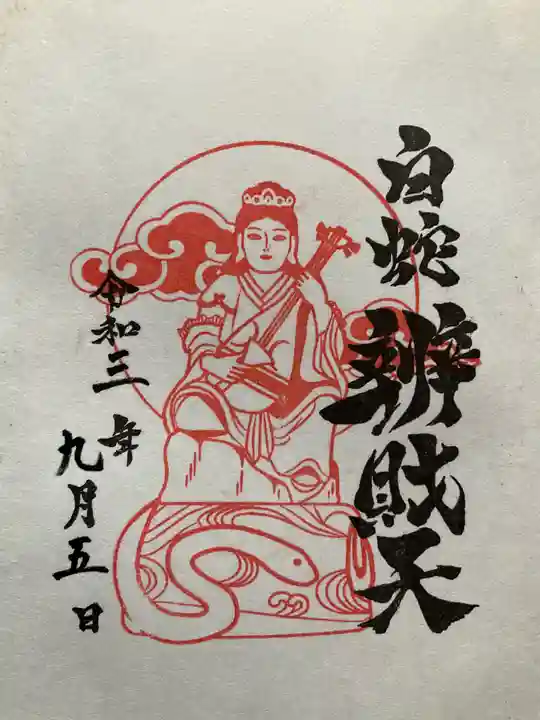 白蛇辨財天
令和三年
九月五日